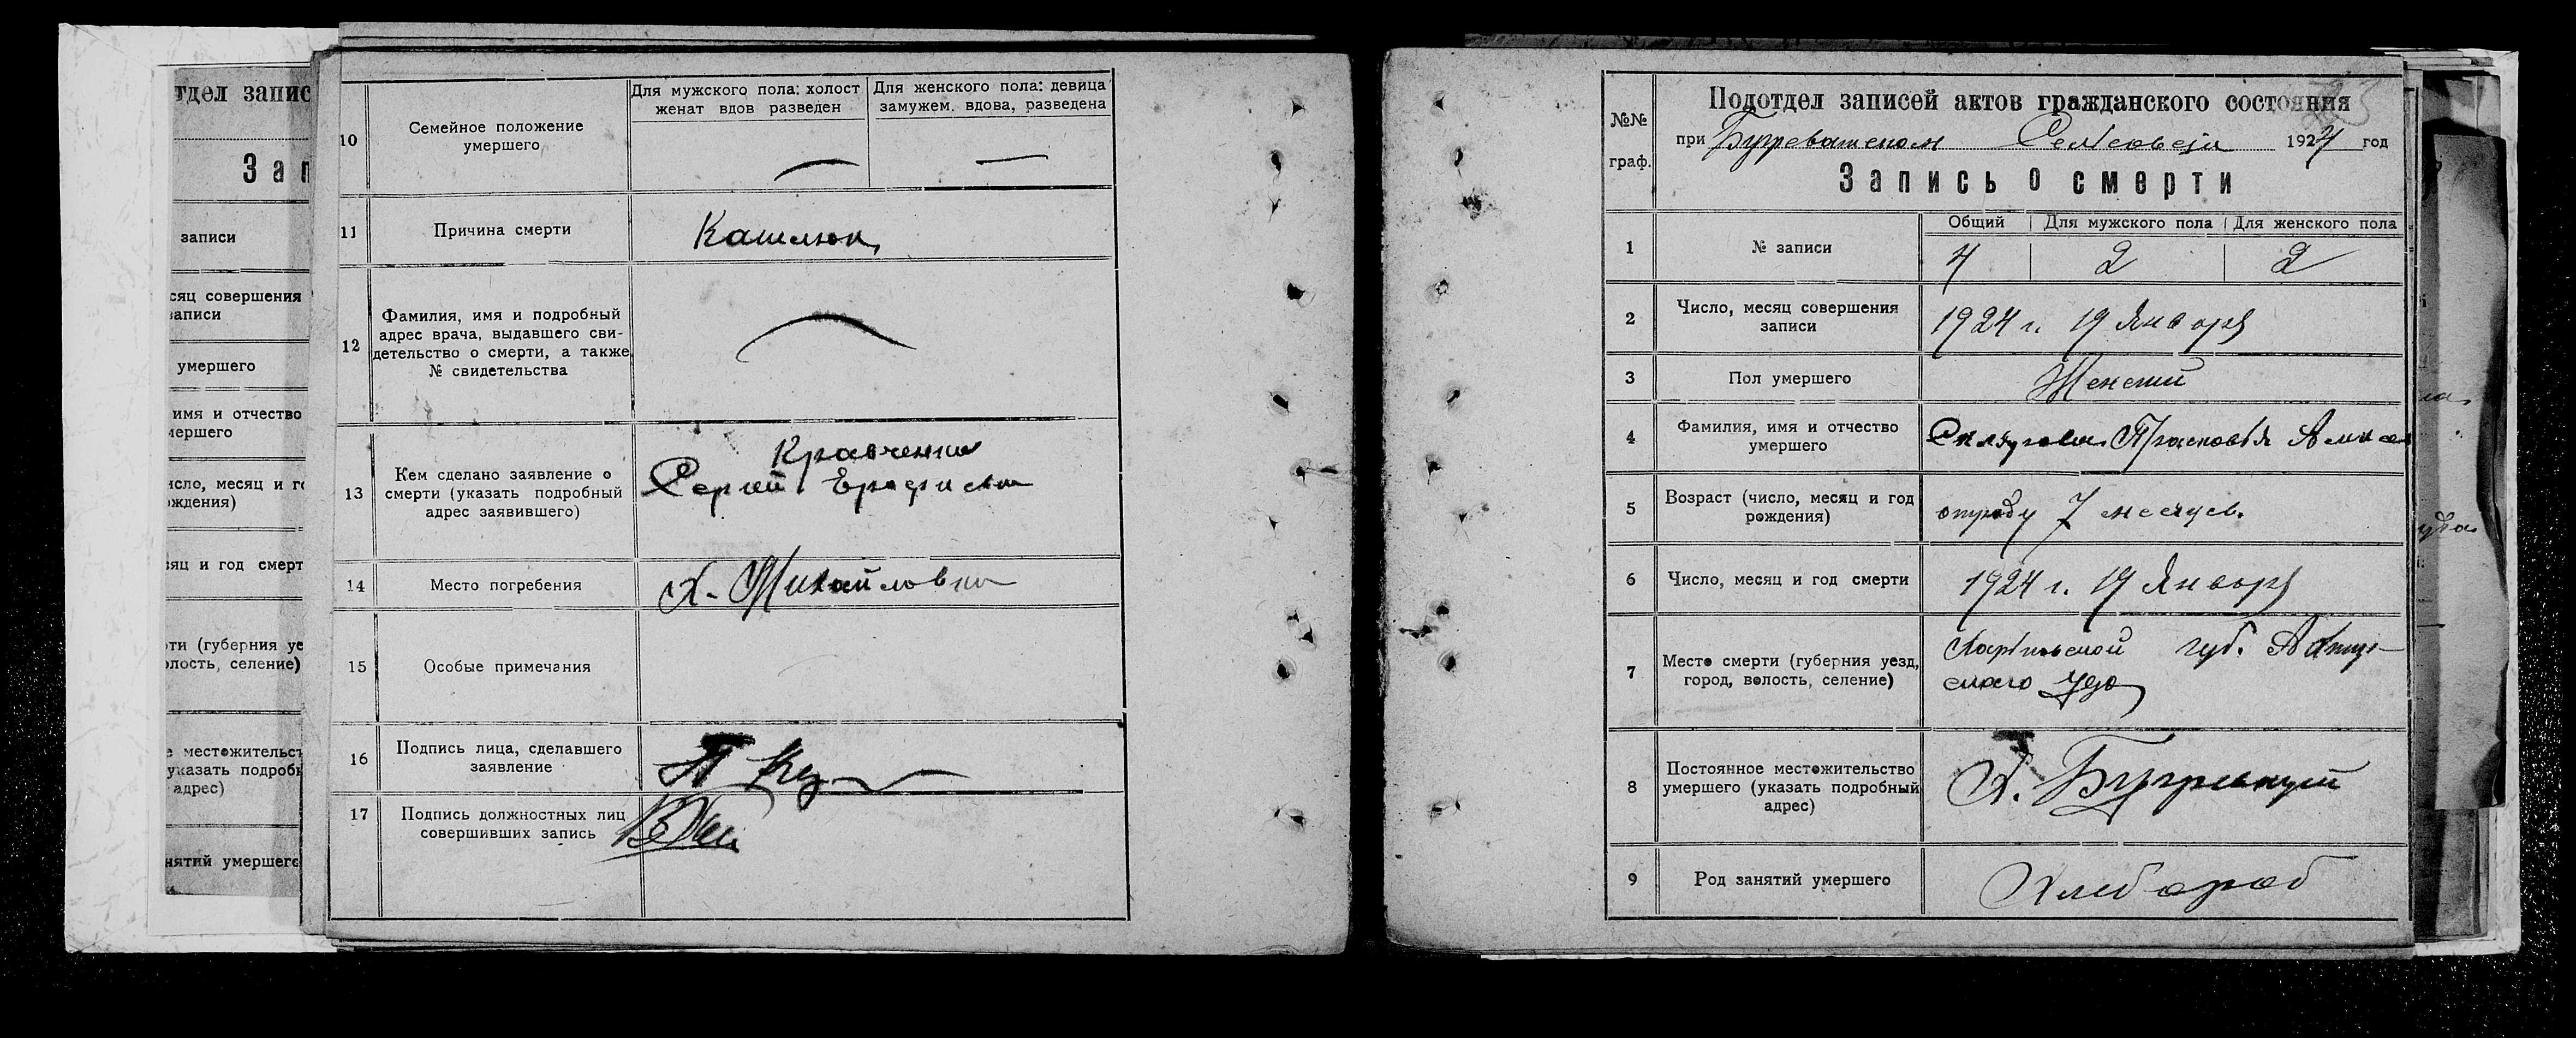 тдел запис
Зап
записи
сяц совершения
записи
умершего
имя и отчество
мершего
исло, месяц и го
ождения)
сяц и год смерт
ти (губерния уе
олость, селение)
е местожительст
указать подробн
адрес)
нятий умершего
10
Семейное положение
умершего
Для мужского пола: холост
женат вдов разведен
Для женского пола: девица
замужем. вдова, разведена
— —
11
Причина смерти
12
Фамилия, имя и подробный
адрес врача, выдавшего сви-
детельство о смерти, а также
№ свидетельства
13
Кем сделано заявление о
смерти (указать подробный
адрес заявившего)
Кравченко
Сергей
14
Место погребения
Х. Михайловка
15
Особые примечания
16
Подпись лица, сделавшего
заявление
17
Подпись должностных лиц
совершивших запись
№№
граф.
Подотдел записей актов гражданского состояния
при 1924 год
Запись о смерти
1
№ записи
Общий Для мужского пола Для женского пола
4 2 2
2
Число, месяц совершения
записи
1924 г. 19 Января
3
Пол умершего
Женский
4
Фамилия, имя и отчество
умершего
Прасковья
5
Возраст (число, месяц и год
рождения)
отроду 7 месяцев.
6
Число, месяц и год смерти
1924 г. 19 Января
7
Место смерти (губерния уезд,
город, волость, селение)
Харьковской губ. Ахтыр-
ского уезд
8
Постоянное местожительство
умершего (указать подробный
адрес)
Х.
9
Род занятий умершего
Хлебороб